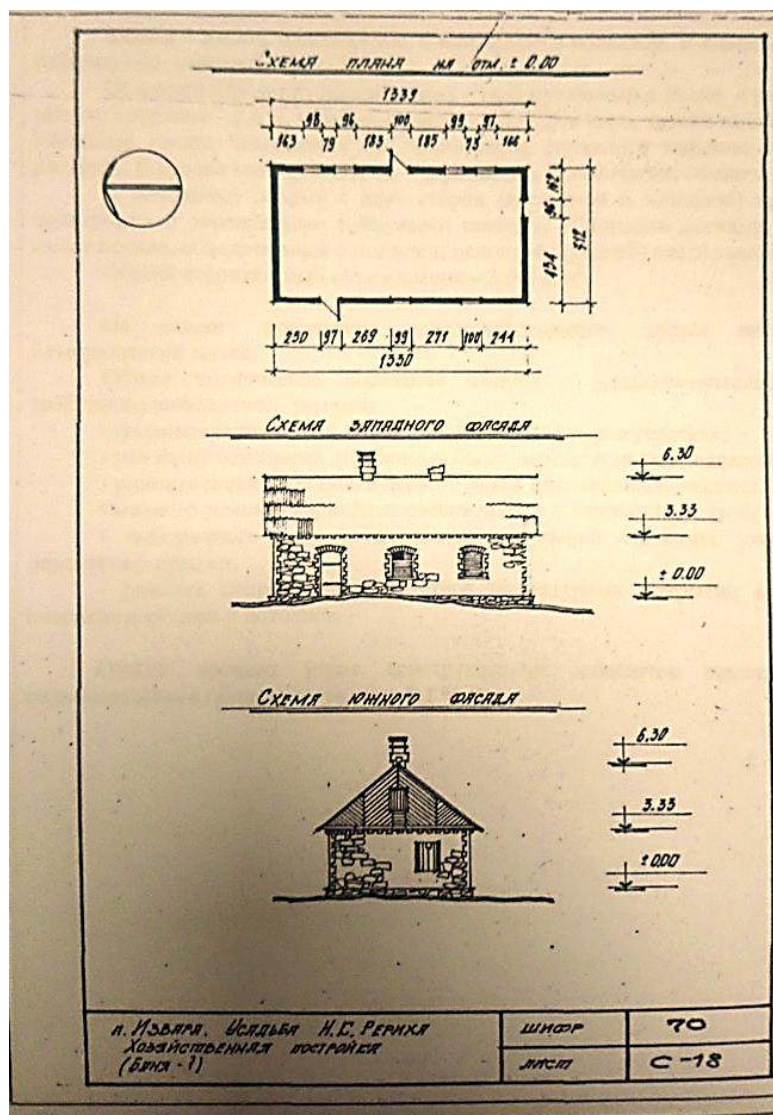 СХЕМА ПЛАНА НА ОТМ. ± 0.00
1339
163 98 79 96 183 100 185 99 73 97 166
162
96
434
572
230 97 269 99 271 100 244
1330
СХЕМА ЗАПАДНОГО ФАСАДА
6.30
3.33
± 0.00
СХЕМА ЮЖНОГО ФАСАДА
6.30
3.33
± 0.00
п. ИЗВАРА. УСАДЬБА Н.К. РЕРИХА
ХОЗЯЙСТВЕННАЯ ПОСТРОЙКА
(БАНЯ - ?)
ШИФР 70
ЛИСТ С-18